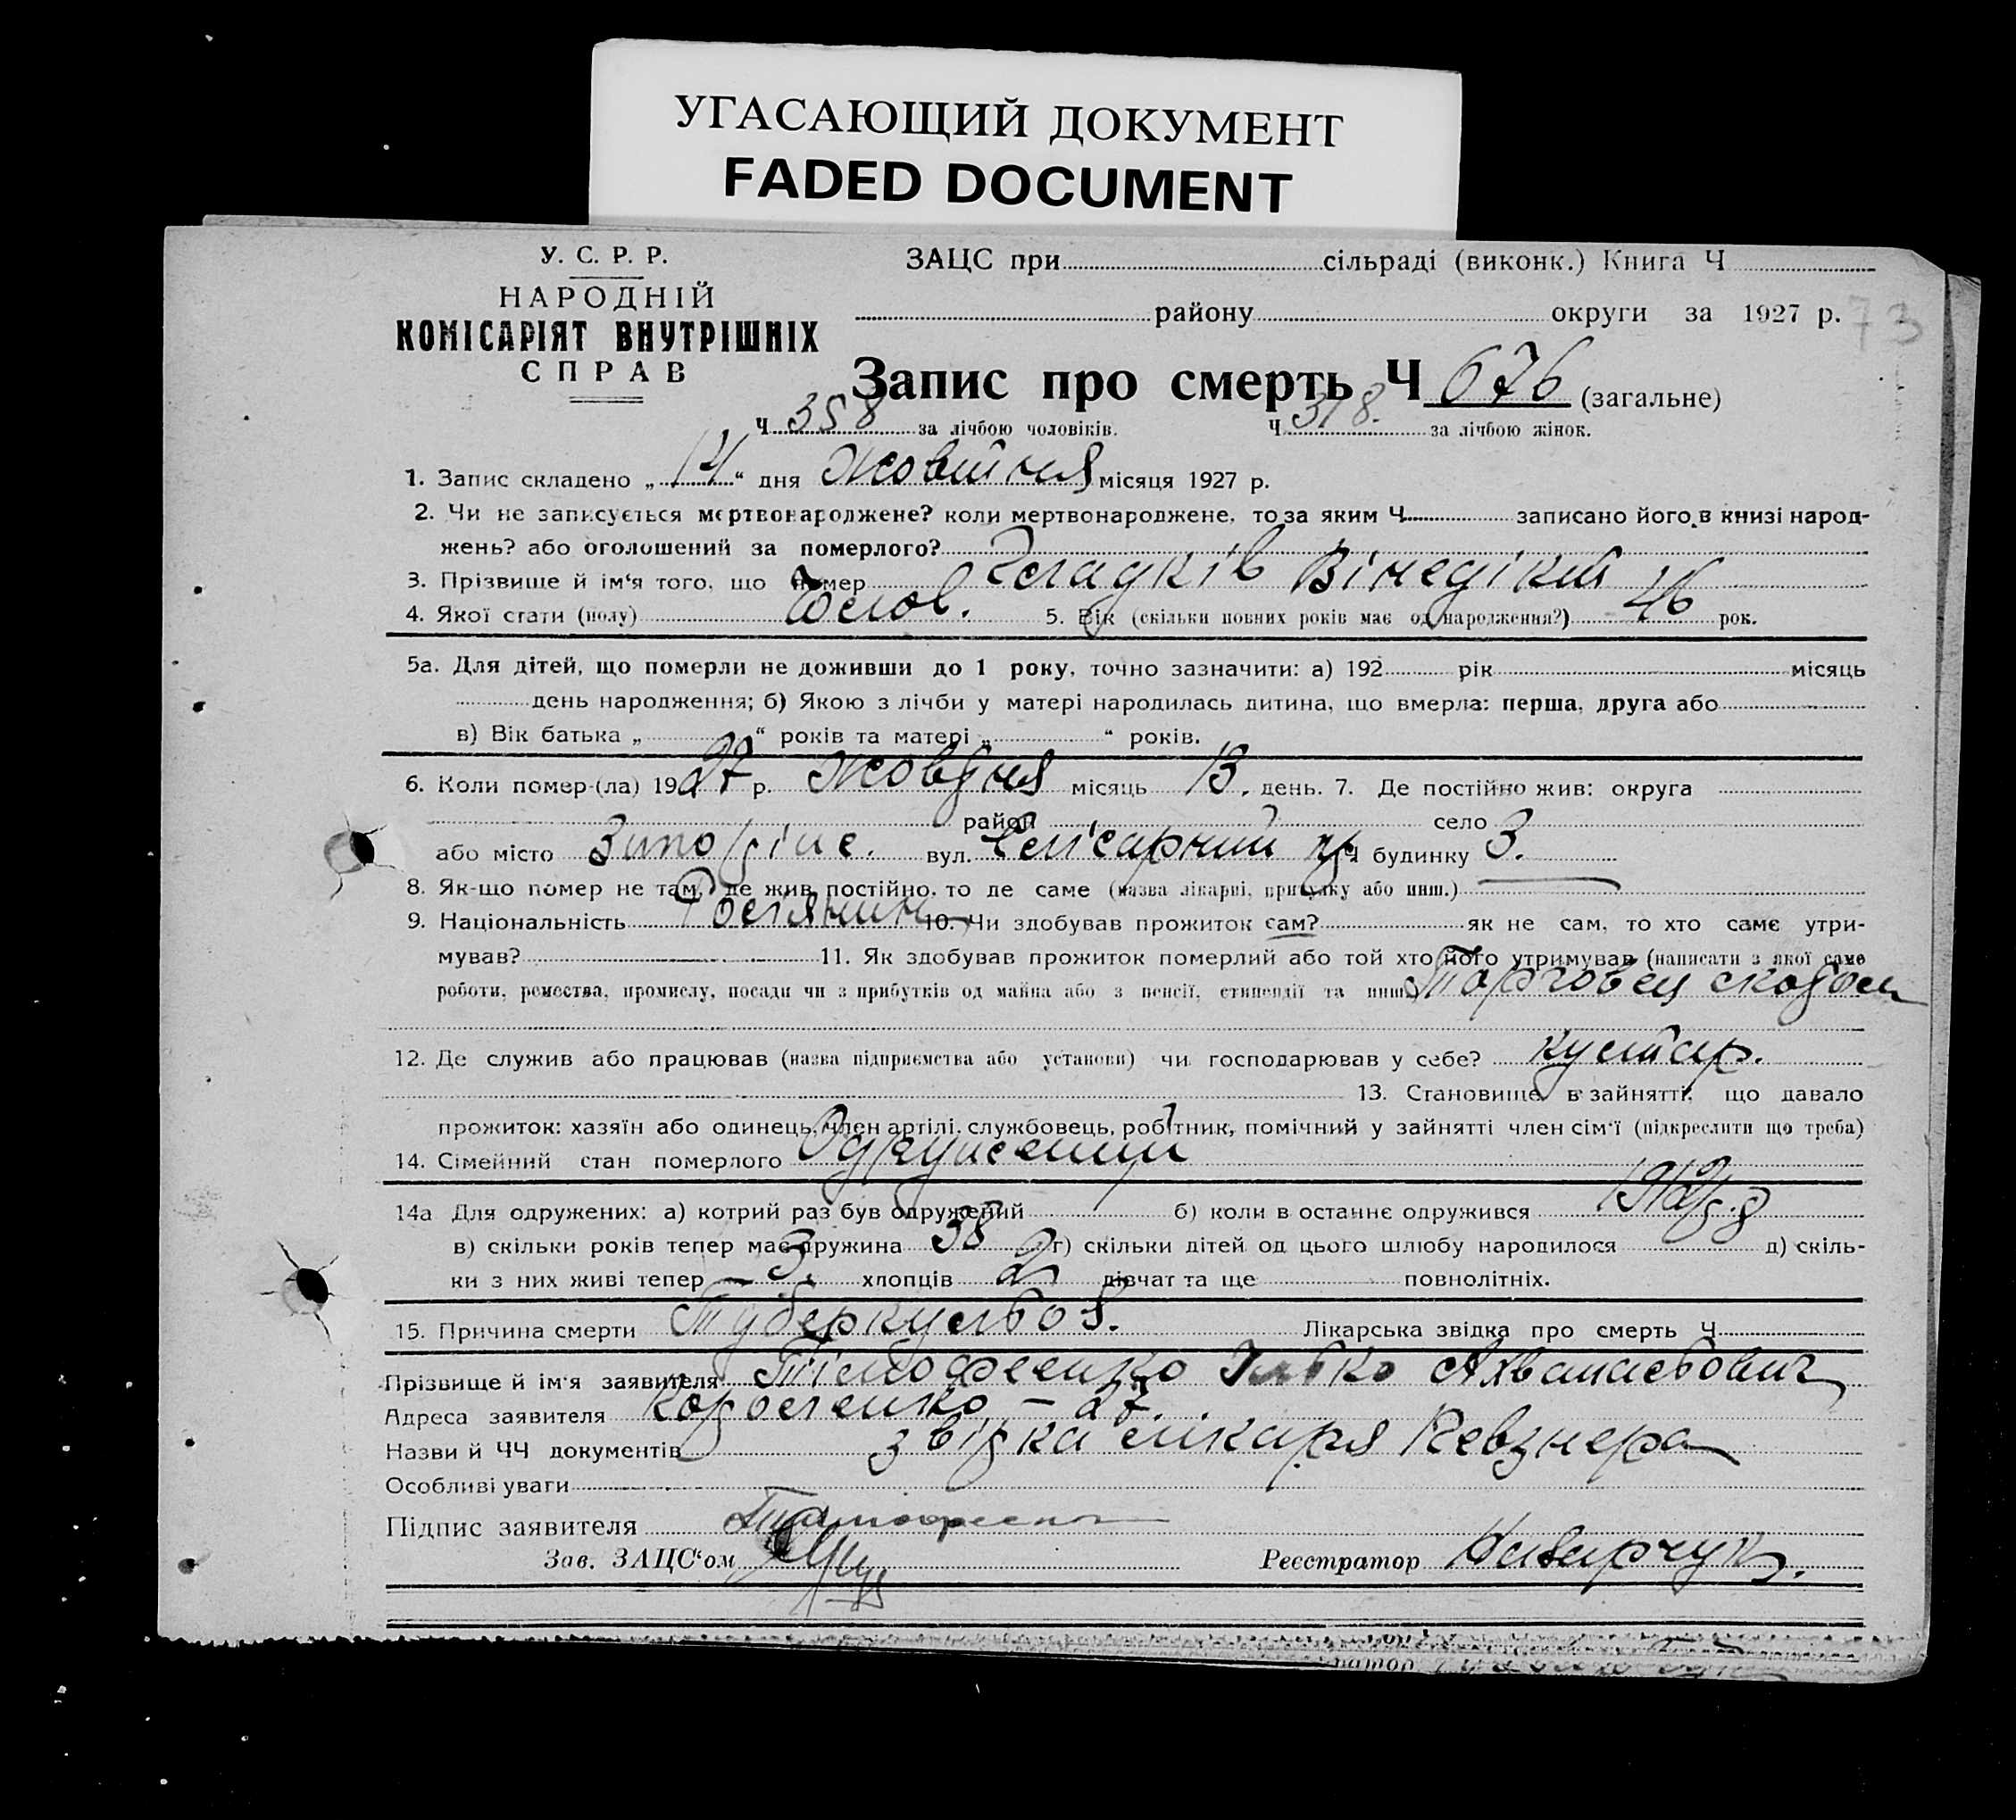 УГАСАЮЩИЙ ДОКУМЕНТ
FADED DOCUMENT
У. С. Р. Р.
НАРОДНІЙ
КОМІСАРІЯТ ВНУТРІШНІХ
СПРАВ
ЗАЦС при сільраді (виконк.) Книга Ч
району округи за 1927 р. 73
Запис про смерть Ч 676 (загальне)
Ч 358 за лічбою чоловіків. Ч 318. за лічбою жінок.
1. Запис складено „14“ дня жовтня місяця 1927 р.
2. Чи не записується мертвонароджене? коли мертвонароджене, то за яким Ч. записано його в книзі народ-
жень? або оголошений за померлого?
3. Прізвище й ім'я того, що помер
4. Якої стати (полу) Чолов. 5. Вік (скільки повних років має од народження?) 46 рок.
5а. Для дітей, що померли не доживши до 1 року, точно зазначити: а) 192 рік місяць
день народження; б) Якою з лічби у матері народилась дитина, що вмерла: перша, друга або
в) Вік батька „ “ років та матері „ “ років.
6. Коли помер-(ла) 1927 р. жовтня місяць 13. день. 7. Де постійно жив: округа
район село
або місто вул. Ч будинку 3.
8. Як-що помер не там, де жив постійно, то де саме (назва лікарні, притулку або инш.)
9. Національність 10. Чи здобував прожиток сам? як не сам, то хто саме утри-
мував? 11. Як здобував прожиток померлий або той хто його утримував (написати з якої саме
роботи, ремества, промислу, посади чи з прибутків од майна або з пенсії, стипендії та инш. Торговец скотом
12. Де служив або працював (назва підприємства або установи) чи господарював у себе? кустар.
13. Становище в зайнятті, що давало
прожиток: хазяїн або одинець, член артілі, службовець, робітник, помічний у зайнятті член сім'ї (підкреслити що треба)
14. Сімейний стан померлого Одружений
14а Для одружених: а) котрий раз був одружений б) коли в останнє одружився
в) скільки років тепер має дружина 38 г) скільки дітей од цього шлюбу народилося д) скіль-
ки з них живі тепер – 3. хлопців 2 дівчат та ще повнолітніх.
15. Причина смерти Туберкульоз. Лікарська звідка про смерть Ч
Прізвище й ім'я заявителя Тімофеенко
Адреса заявителя – 27.
Назви й ЧЧ документів звідка лікаря Певзнера
Особливі уваги
Підпис заявителя
Зав. ЗАЦС'ом Реєстратор